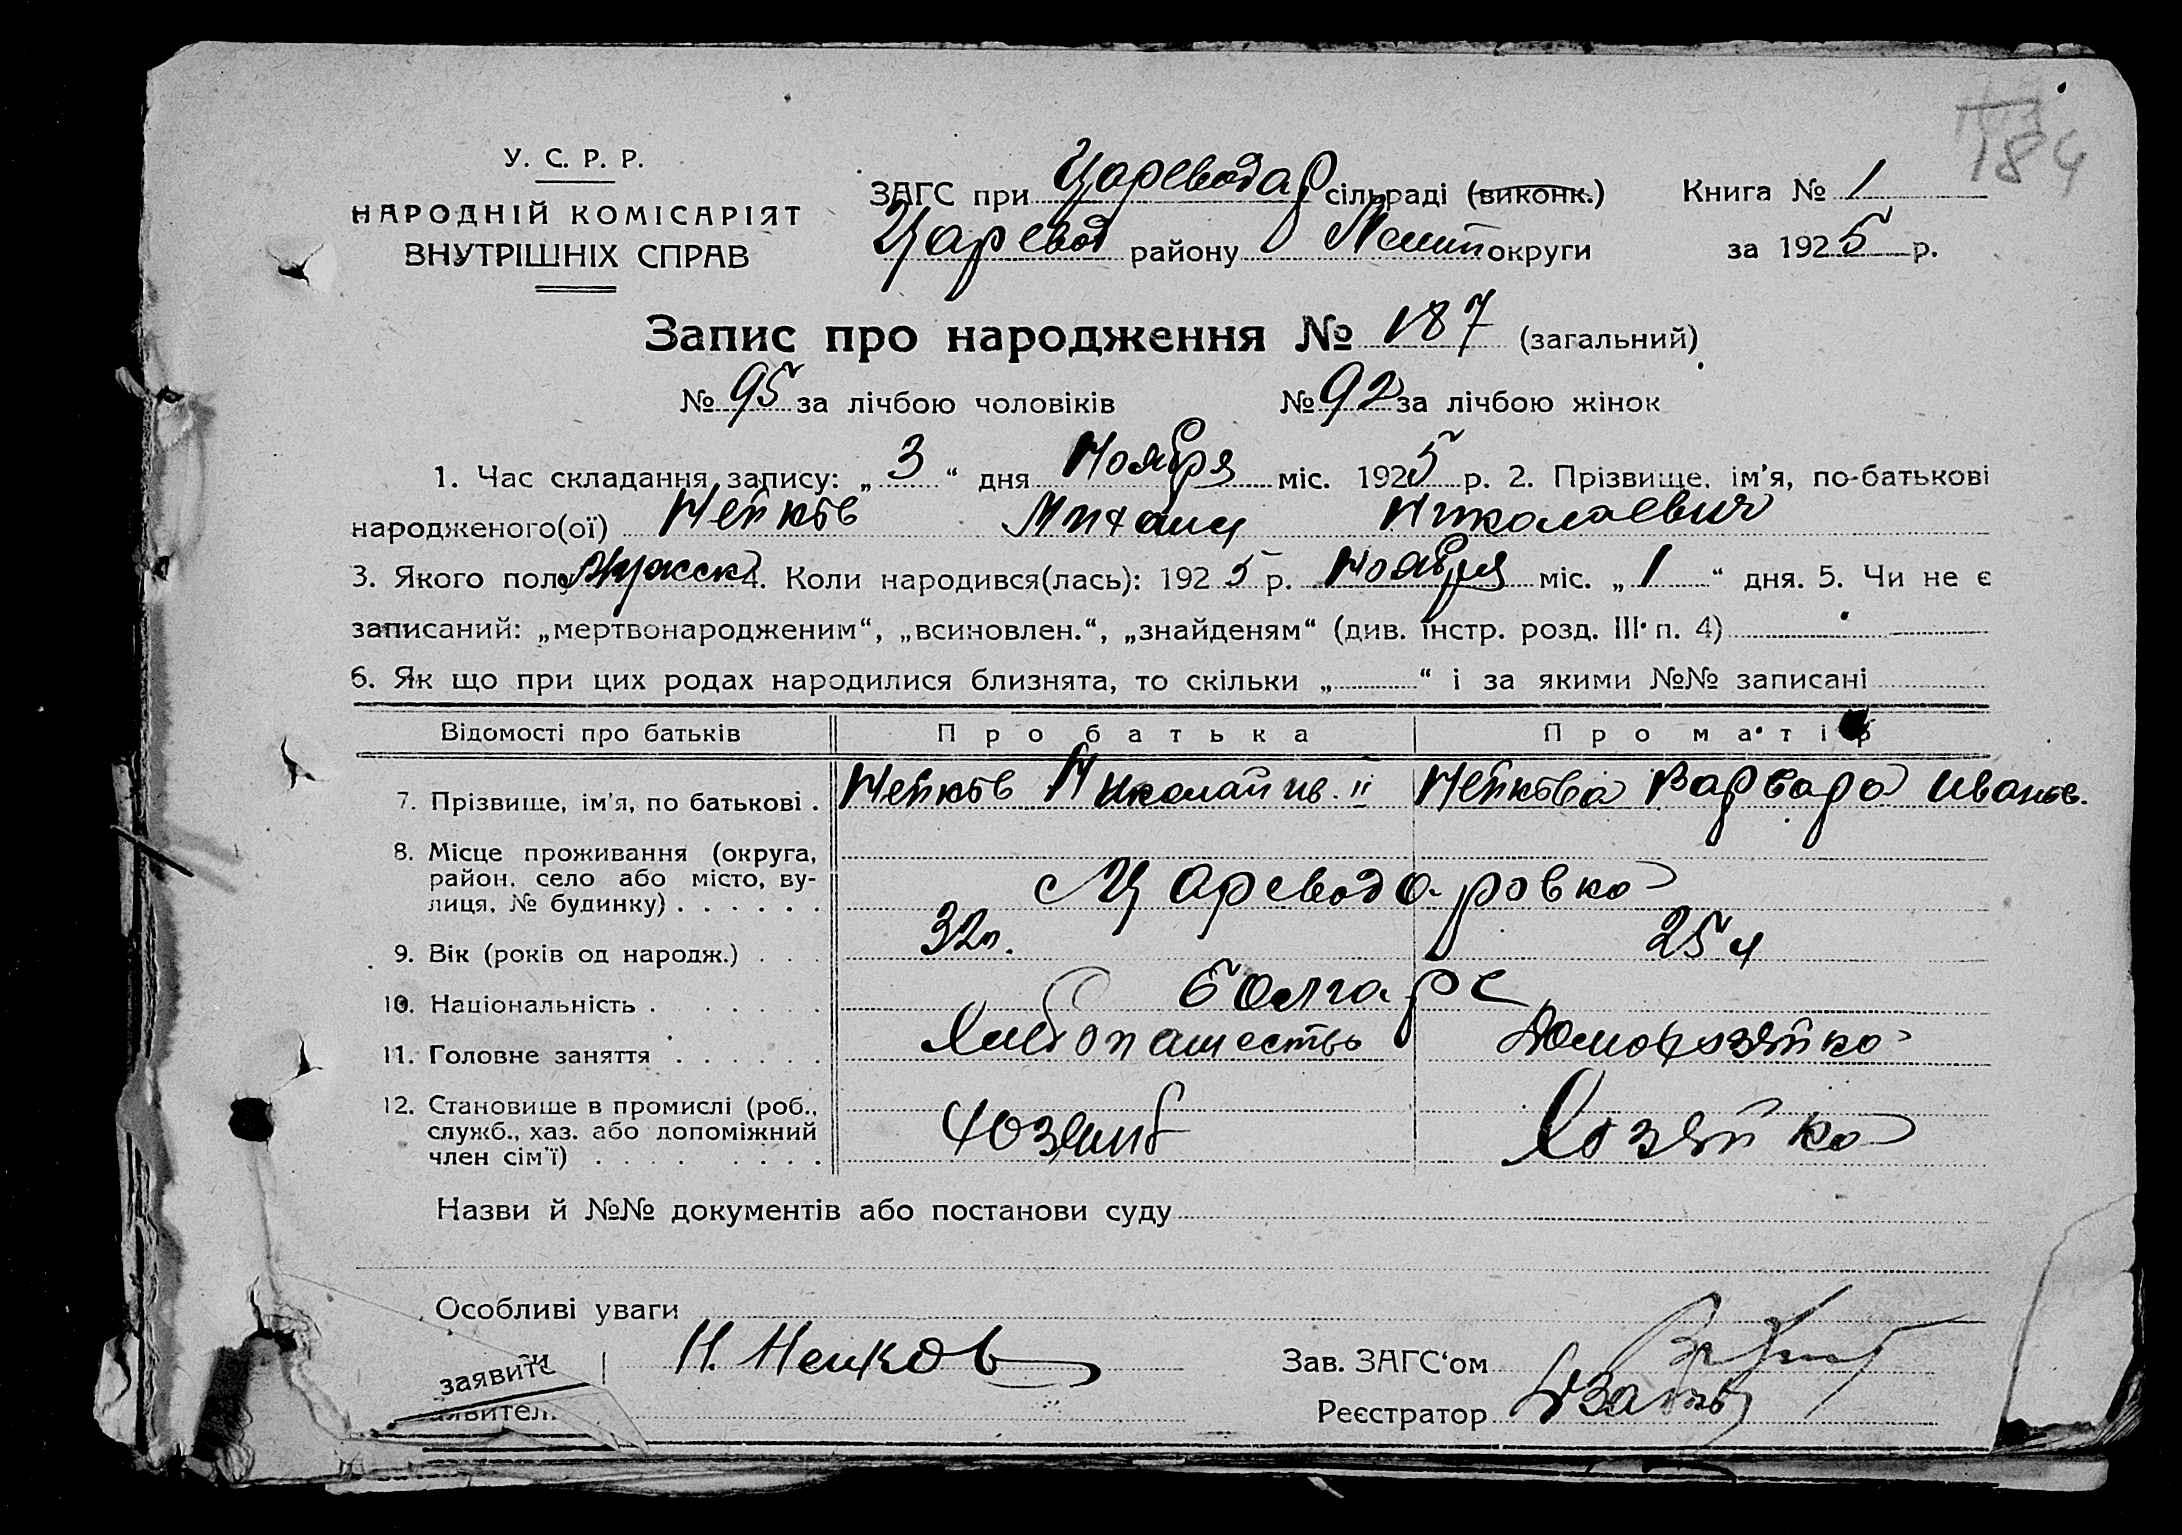 184
У. С. Р. Р.
НАРОДНІЙ КОМІСАРІЯТ
ВНУТРІШНІХ СПРАВ
ЗАГС при Цареводар сільраді (виконк.) Книга № 1
Царевод району Мелит округи за 1925 р.
Запис про народження № 187 (загальний)
№ 95 за лічбою чоловіків № 92 за лічбою жінок
1. Час складання запису: „ 3 “ дня Ноября міс. 1925 р. 2. Прізвище, ім'я, по-батькові
народженого(ої) Нейков Михаил Николаевич
3. Якого полу Мужск 4. Коли народився(лась): 1925 р. Ноября міс. „ 1 “ дня. 5. Чи не є
записаний: „мертвонародженим“, „всиновлен.“, „знайденям“ (див. інстр. розд. III п. 4)
6. Як що при цих родах народилися близнята, то скільки „ “ і за якими №№ записані
Відомості про батьків Про батька Про матір
7. Прізвище, ім'я, по батькові . Нейков Николай ив. II Нейкова Варвара Иванов.
8. Місце проживання (округа,
район, село або місто, ву-
лиця, № будинку) . . . . . . с Цареводаровка
9. Вік (років од народж.) . . . 32л. 25 л
10. Національність . . . . . . . болгаре
11. Головне заняття . . . . . . Хлебопашество Домохозяйка
12. Становище в промислі (роб.,
служб., хаз. або допоміжний
член сім'ї) . . . . . . . . хозяин Хозяйка
Назви й №№ документів або постанови суду
Особливі уваги
заявите Н. Нейков Зав. ЗАГС‘ом
явител. Реєстратор